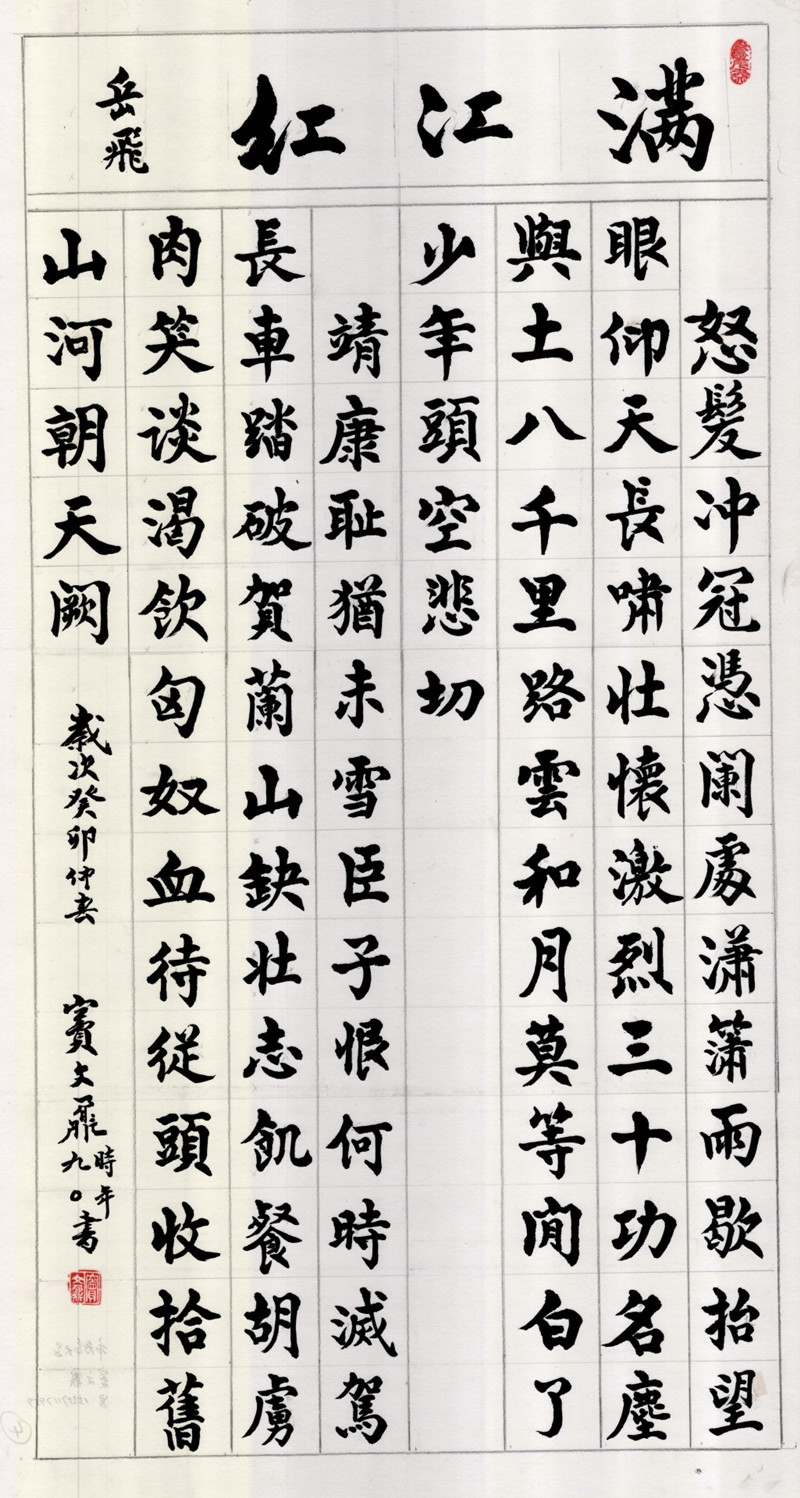 满江红
岳飛
怒髮冲冠憑闌處潇箫雨歇抬望
眼仰天長啸壮懷激烈三十功名塵
與土八千里路雲和月莫等閒白了
少年頭空悲切
靖康耻猶未雪臣子恨何時滅駕
長車踏破賀蘭山缺壮志飢餐胡虜
肉笑谈渴飲匈奴血待從頭收拾舊
山河朝天阙
歲次癸卯仲春
竇文鼐時年九〇書
④